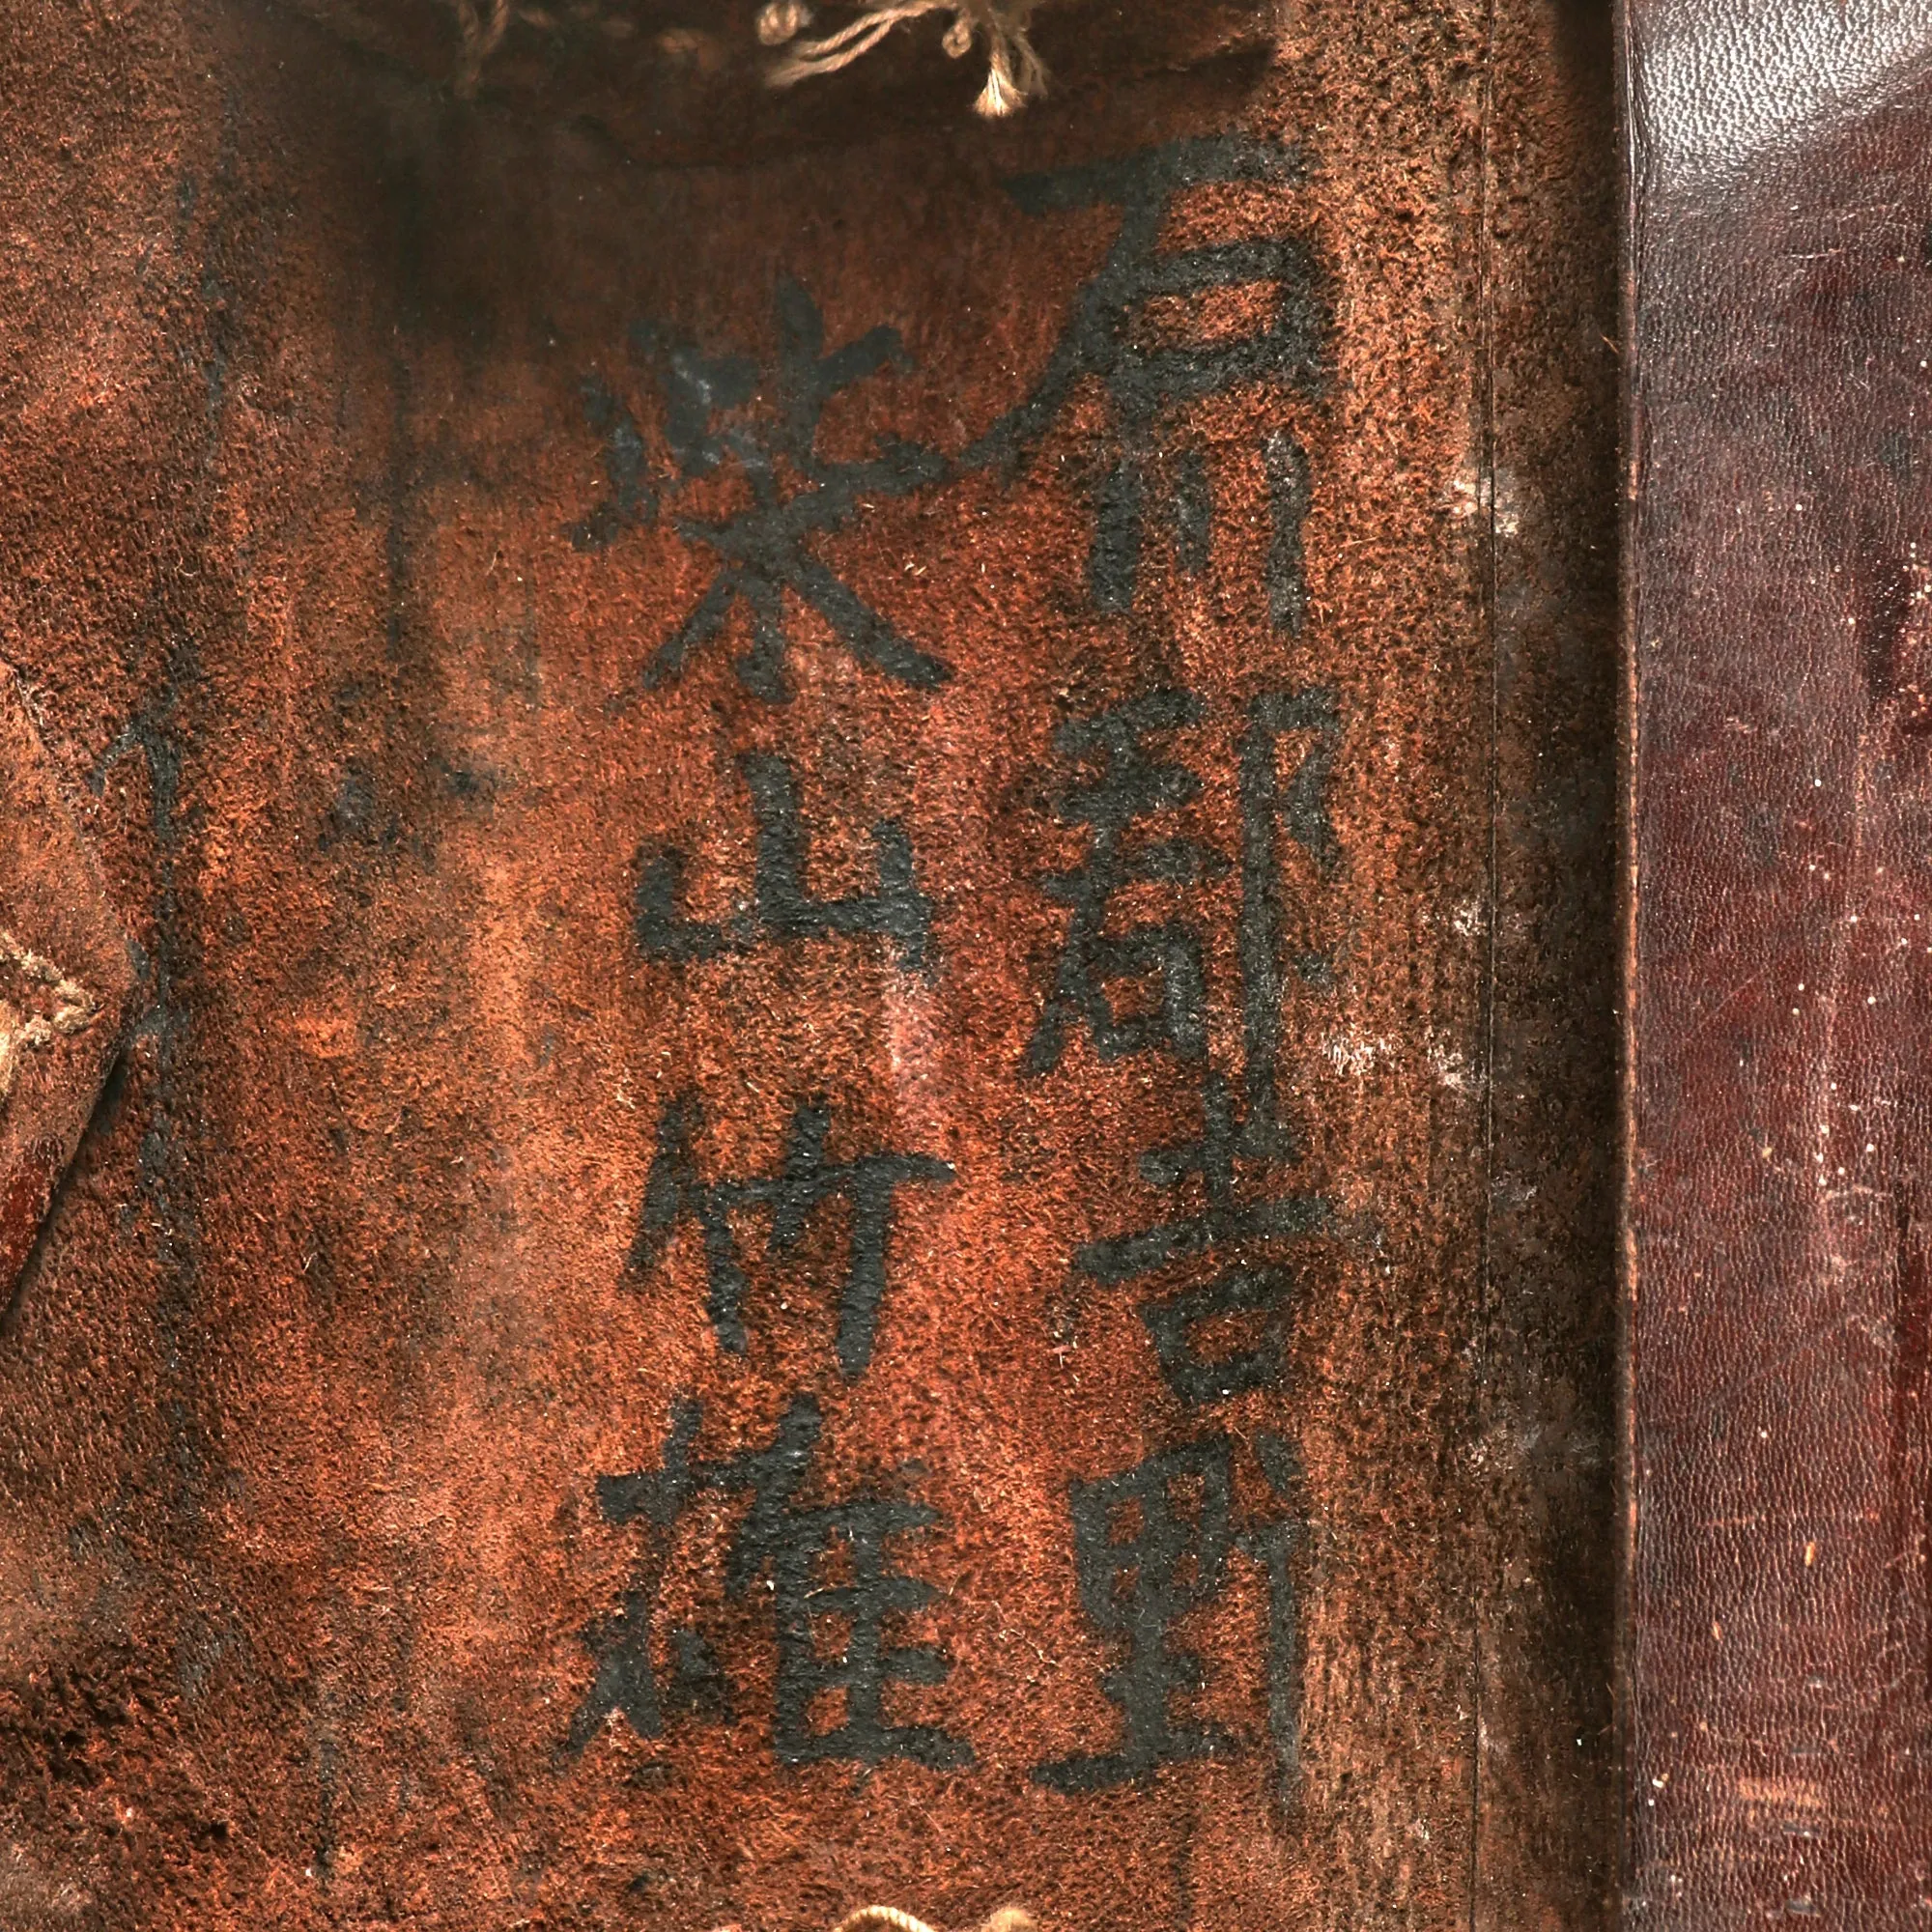 石川郡吉野
柴山竹雄